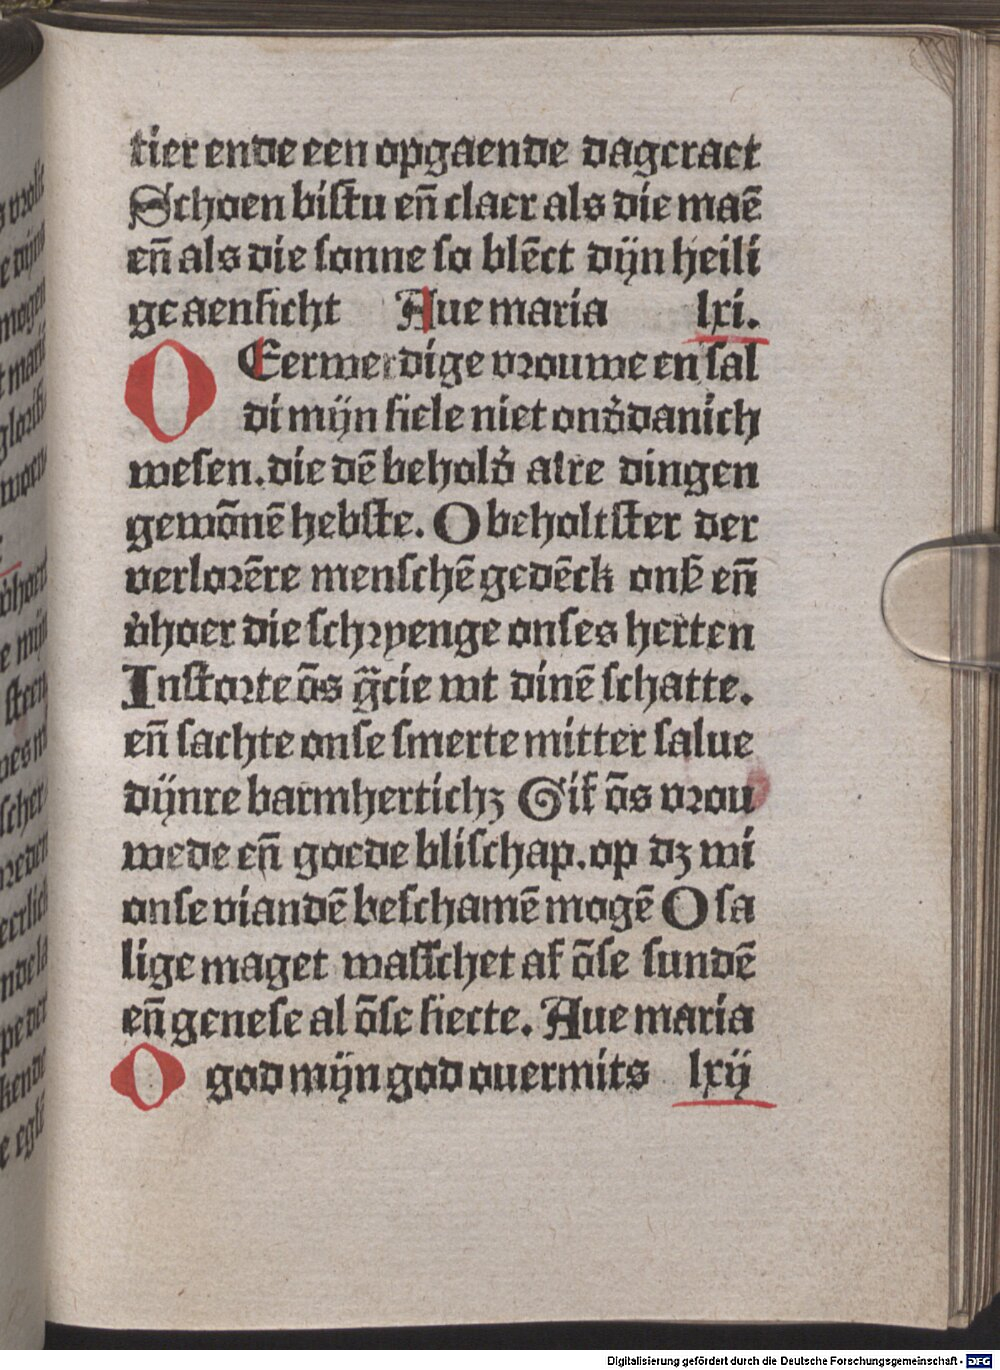 tier ende een opgaende dagcraet
Schoen bistu en̄ claer als die maē
en̄ als die sonne so blēct dijn heili
ge aensicht Aue maria lxi.
O Eerwerdige vrouwe en sal
di mijn siele niet onđdanich
wesen. die dē behold̓ alre dingen
gewōnē hebste. O beholtster der
verlorēre menschē gedēck ons̄ en̄
v̓hoer die schryenge onses herten
Instorte ōs gr̄cie wt dinē schatte.
en̄ sachte onse smerte mitter salue
dijnre barmhertichꝫ Gif ōs vrou
wede en̄ goede blischap. op dꝫ wi
onse viandē beschamē mogē O sa
lige maget wasschet af ōse sundē
en̄ genese al ōse siecte. Aue maria
O god mijn god ouermits lxij
Digitalisierung gefördert durch die Deutsche Forschungsgemeinschaft - DFG